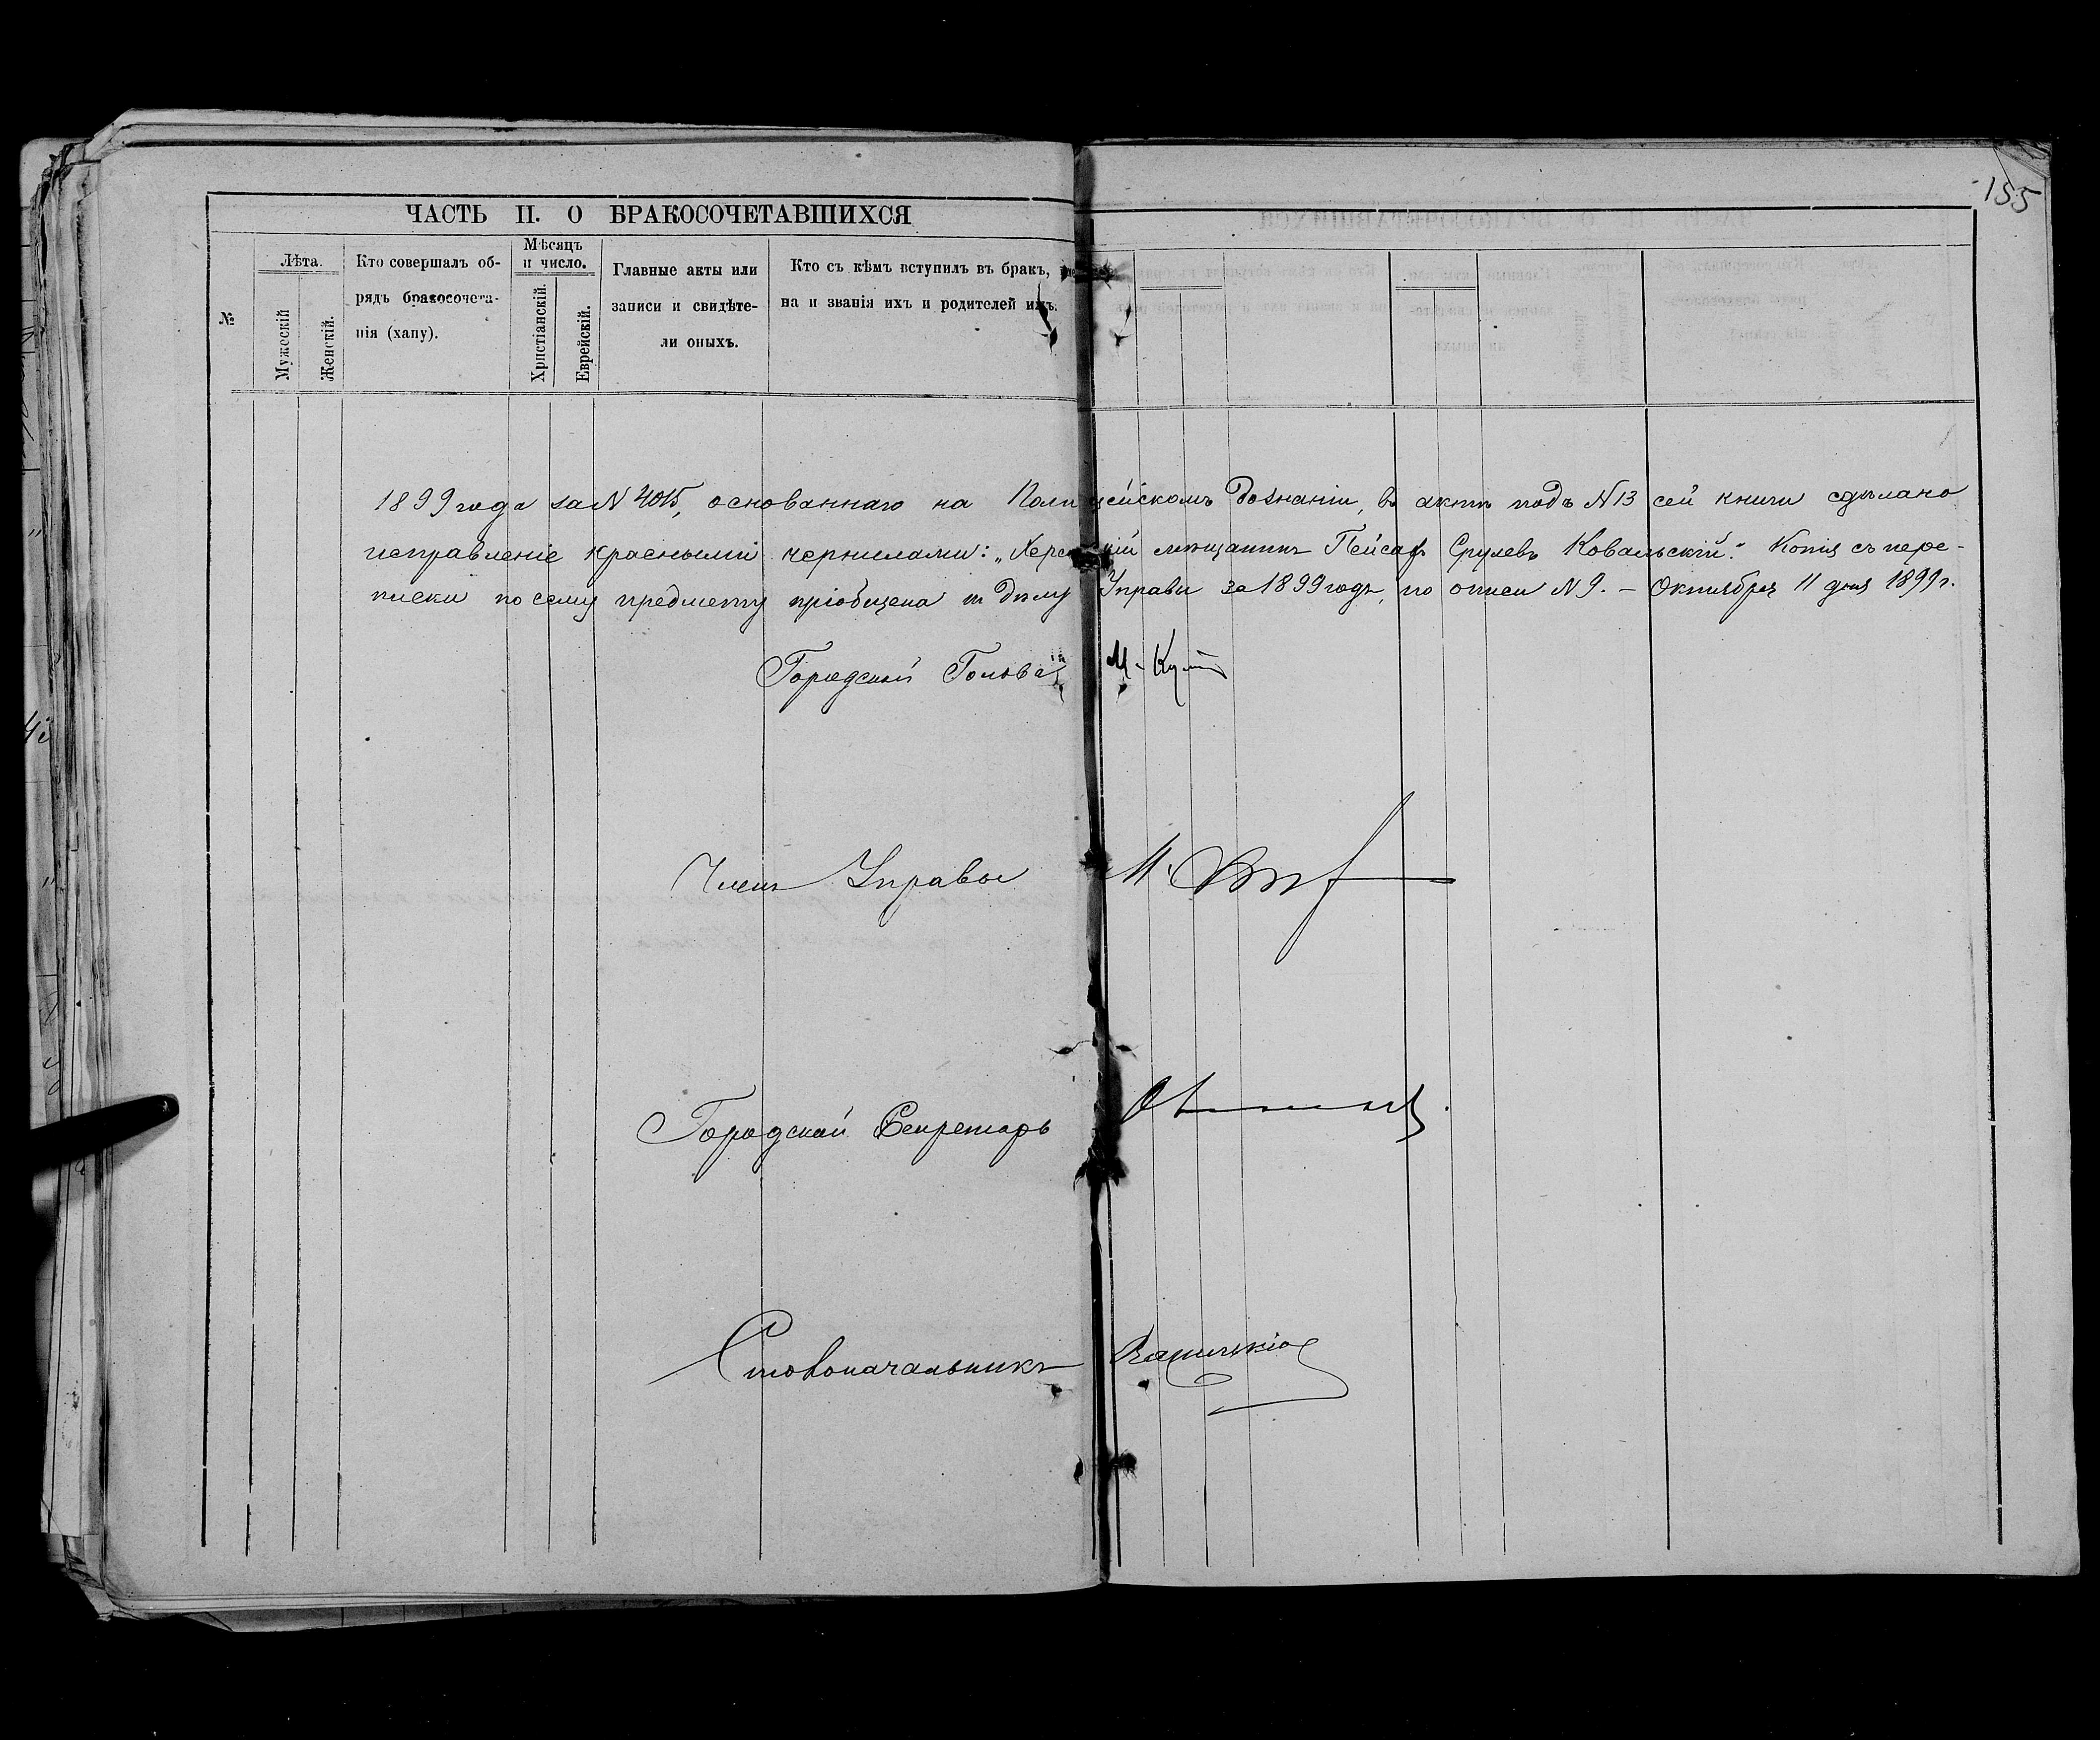 155
ЧАСТЬ II. О БРАКОСОЧЕТАВШИХСЯ
№
Лѣта.
Мужескій
Женскій.
Кто совершалъ об-
рядъ бракосочета-
нія (хапу).
Мѣсяцъ
и число.
Христіанскій.
Еврейскій.
Главные акты или
записи и свидѣте-
ли оныхъ.
Кто съ кѣмъ вступилъ въ бракъ,
на и званія ихъ и родителей ихъ.
1899 года за N 4015, основаннаго на Полицейскомъ дознаніи, въ актѣ подъ N 13 сей книги сдѣлано
исправленіе красными чернилами: „Херсонскій мѣщанинъ Пейсах Срулевъ Ковальскій." Копія съ пере-
писки по сему предмету пріобщена къ дѣлу Управы за 1899 годъ, по описи N 9. — Октября 11 дня 1899 г.
Городской Голова М.
Членъ Управы М.
Городской Секретарь
Столоначальникъ